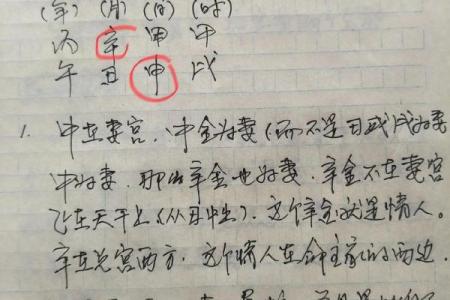 (年) (月) (日) (时)
丙 辛 甲 甲
午 丑 申 戌
1. 申在妻宫，申金为妻(而不是丑或戌为妻
申为妻，那么辛金也为妻，辛金不在妻宫
飞在天干上(从丑中出)，这个辛金就是情人。
辛在兑宫西方，这个情人在命主家的西边。